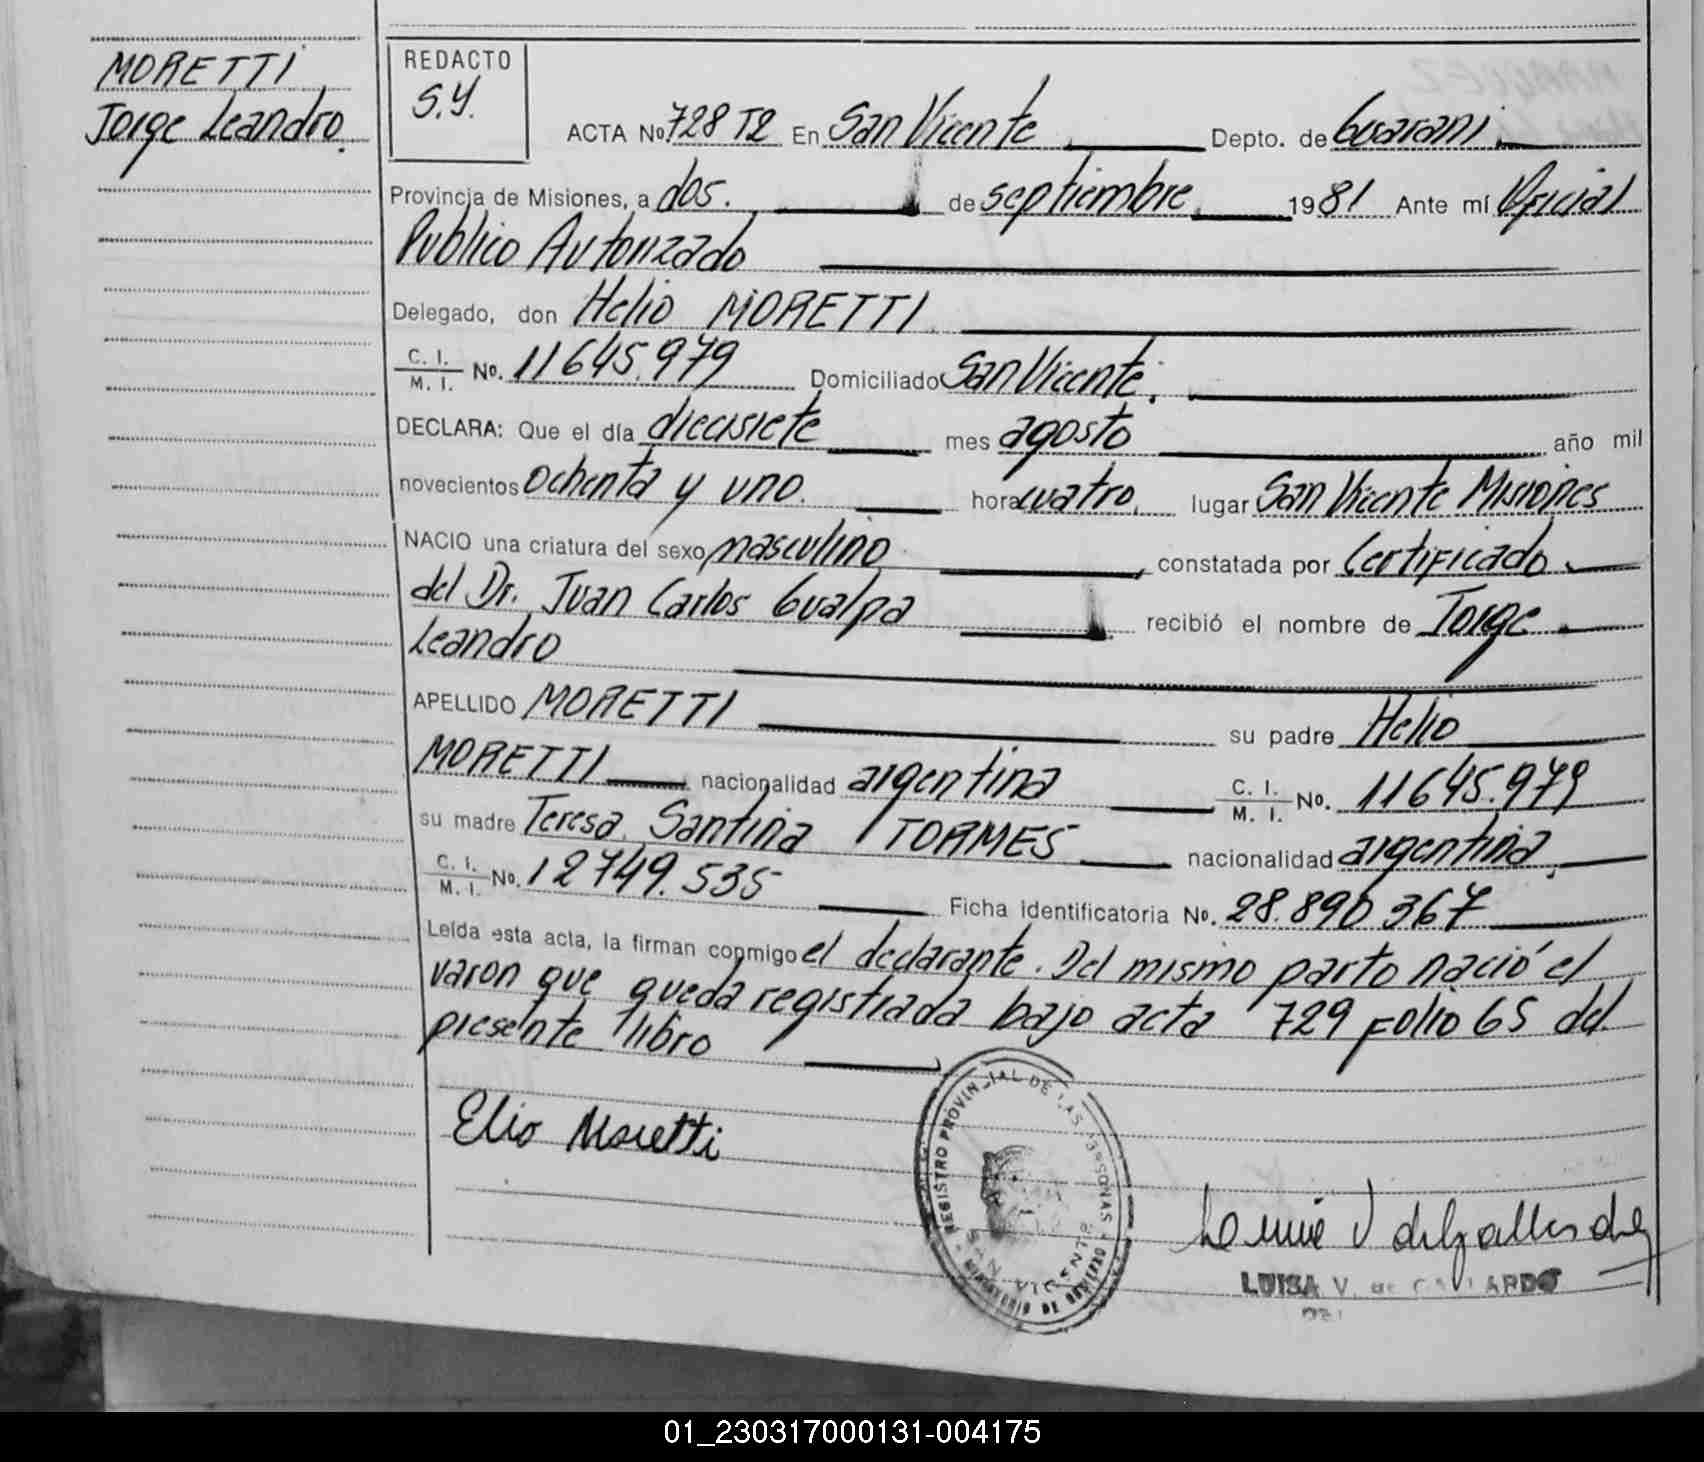 MORETTI
Jorge Leandro.
REDACTO
S.Y.
ACTA No. 728 T2 En San Vicente Depto. de Guarani
Provincia de Misiones, a dos. de septiembre 1981 Ante mí Oficial
Publico Autorizado
Delegado, don Helio MORETTI
C. I.
M. I. No. 11645.979 Domiciliado San Vicente.
DECLARA: Que el día diecisiete mes agosto año mil
novecientos ochenta y uno. hora cuatro. lugar San Vicente Misiones
NACIO una criatura del sexo masculino constatada por Certificado
del Dr. Juan Carlos Gualpa recibió el nombre de Jorge
Leandro
APELLIDO MORETTI su padre Helio
MORETTI nacionalidad argentina C. I.
M. I. No. 11645.979
su madre Teresa Santina TORMES nacionalidad argentina
C. I.
M. I. No. 12749.535 Ficha identificatoria No. 28.890 367
Leída esta acta, la firman conmigo el declarante. Del mismo parto nació el
varon que queda registrada bajo acta 729 folio 65 del
presente libro
Elio Moretti
REGISTRO PROVINCIAL DE LAS PERSONAS
SAN VICENTE
LUISA V. de GALLARDO
01_230317000131-004175